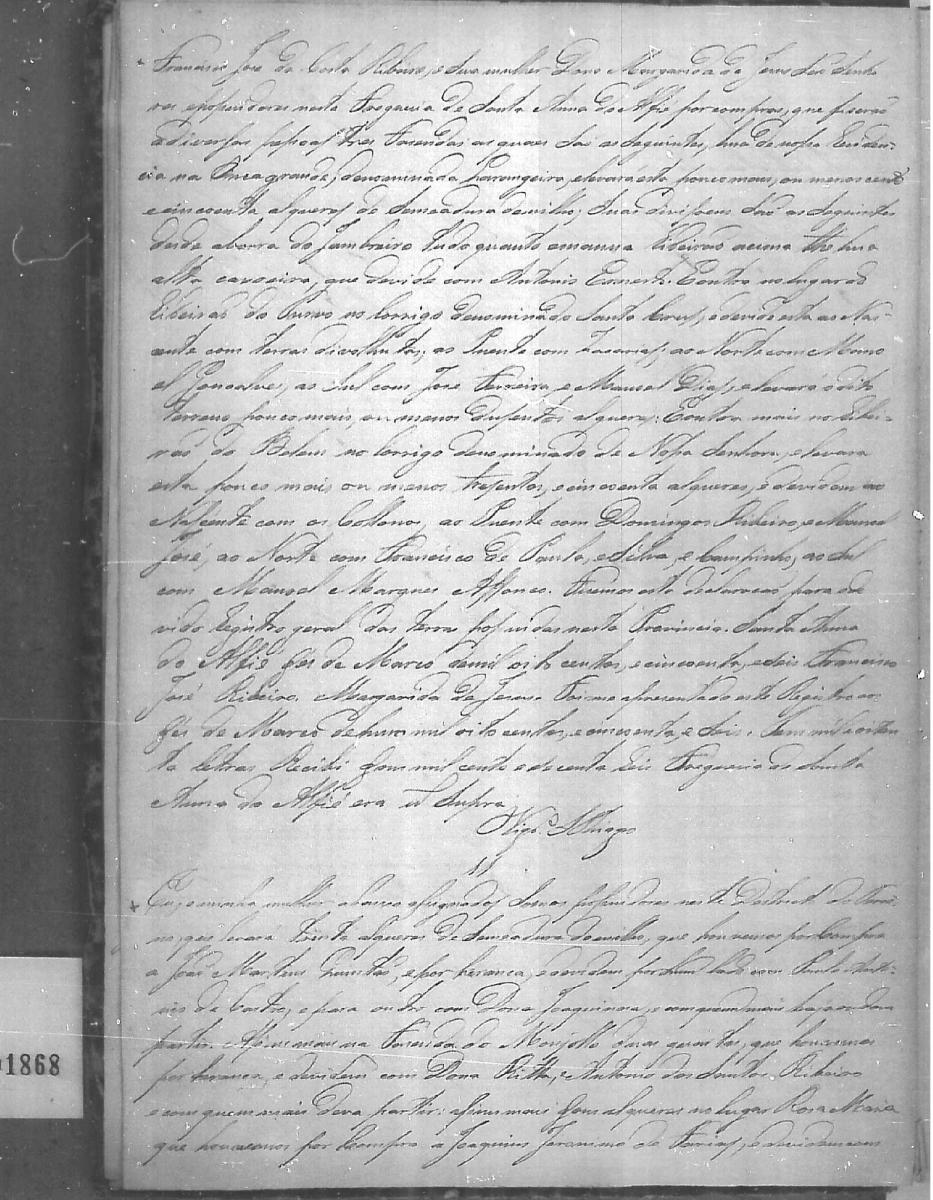 Francisco José da Costa Ribeiro, e sua mulher Dona Margarida de Jesus Saõ Senho
res epossuidores nesta Freguesia de Santa Anna do Alfié por compras, que fiseraõ
a diversas pessoas tres Fasendas as quaes saõ as seguintes, huma de nossa Residen-
cia na Onça grande, denominada Larangeira, elevará esta pouco mais, ou menos cento
e cincoenta alqueres de Semeadura demilho; Suas divisoens saõ as seguintes
desde abarra do Jambreiro tudo quanto emanna Ribeiraõ acima thé huma
alta caxoeira, que devide com Antonio Ernesto. E outra no lugar do
Ribeiraõ do Turvo no Corrigo denominado Santa Cruz, e devide esta ao Nas-
cente com terras divolutas; ao Puente com Zacarias; ao Norte com Mano
el Gonsalves, ao Sul com José Ferreira, e Manoel Dias, e levará o dito
terreno pouco mais, ou menos dusentos alqueres: E outra mais no Ribei-
raõ do Belem no Corrigo denominado de Nossa Senhora, e levara
esta pouco mais ou menos tresentos, e cincoenta alqueres, e devidem ao
Nascente com os Collonos, ao Puente com Domingos Ribeiro, e Manoel
José, ao Norte com Francisco de Paula, e Silva, e Campinho, ao Sul
com Manoel Marques Affonco. Fisemos esta declaracaõ para ode
vido Registro geral das terras possuidas nesta Provincia. Santa Anna
do Alfié des de Marco demil oito centos, e cincoenta, e seis Francisco
José Ribeiro, Margarida de Jesus. Foi me apresentado este Registro aos
des de Marco de hum mil oito centos, e cincoenta, e seis. Tem mil e oiten
ta letras Recibi dous mil cento e secenta reis Freguesia de Santa
Anna do Alfié era ut Supra
Vigr.º Thiago
11
Eu, e minha mulher abaixo assignados somos possuidores neste Destrito do
no, que levará trinta alqueres de Semeadura demilho, que houvemos por Compra
a José Martins, e por heranca, e devidem por hum lado com Paulo Anto-
nio de Castro, e para outro com Dona Joaquinna, e com quem mais haja, ou deva
partir. Assim mais na Fasenda do Monjollo duas quartas, que houvemos
por heranca, e devidem com Dona Ritta, e Antonio dos Santos Ribeiro
e com quem mais deva partir: assim mais dous alqueres no lugar Rosa Maria
que houvemos por Compra a Joaquim Jeronimo de Farias, e devidem com